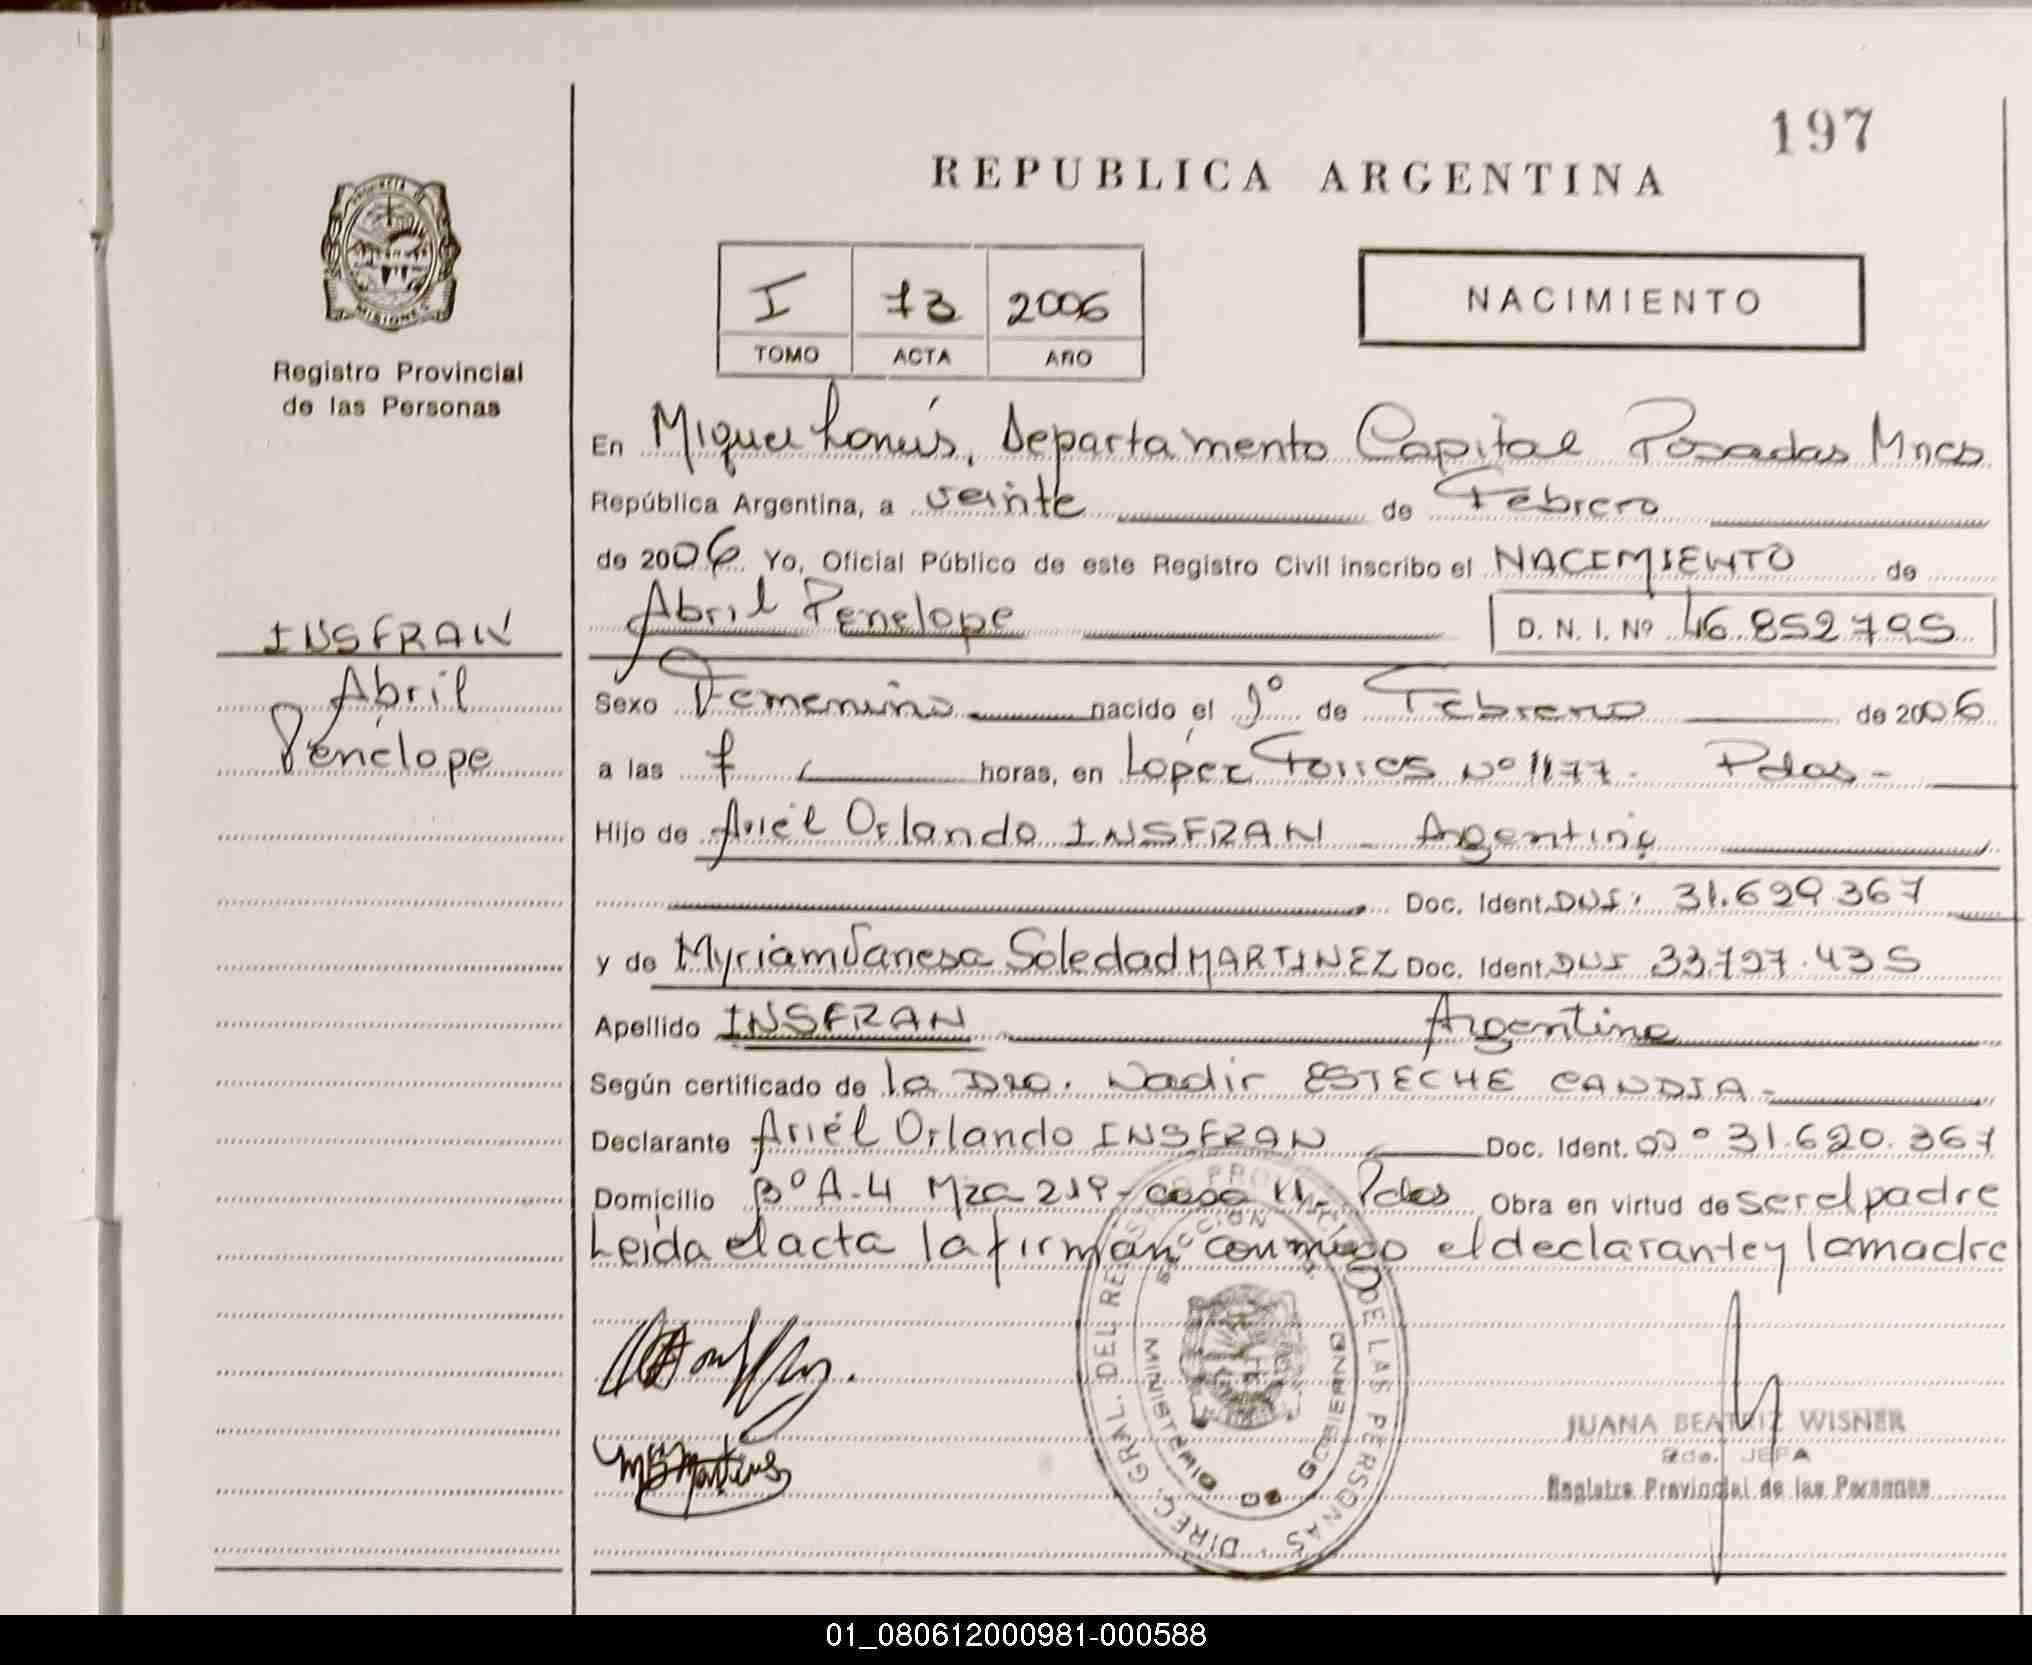 197
REPUBLICA ARGENTINA
PROVINCIA DE
MISIONES
Registro Provincial
de las Personas
I 73 2006
TOMO ACTA AÑO
NACIMIENTO
En Miguel Lanús, Departamento Capital Posadas Mnes
República Argentina, a veinte de Febrero
de 2006 Yo, Oficial Público de este Registro Civil inscribo el NACIMIENTO de
Abril Penelope D. N. I. Nº 46.852795
INSFRAN
Abril
Penélope
Sexo Femenino nacido el 1º de Febrero de 2006
a las 7 horas, en López Torres Nº 1177. Pdas-
Hijo de Ariel Orlando INSFRAN - Argentino
Doc. Ident. DNI: 31.629.367
y de Myriam Vanesa Soledad MARTINEZ Doc. Ident. DNI 33.727.435
Apellido INSFRAN Argentina
Según certificado de la Dra. Nadir ESTECHE CANDIA-
Declarante Ariél Orlando INSFRAN Doc. Ident. 31.620.367
Domicilio Bº A-4 Mza 219 - casa 11- Pdas Obra en virtud de ser el padre
Leída el acta la firman conmigo el declarante y la madre
DIREC. GRAL. DEL REGISTRO PROVINCIAL DE LAS PERSONAS
MINISTERIO DE GOBIERNO
JUANA BEATRIZ WISNER
2da. JEFA
Registro Provincial de las Personas
01_080612000981-000588